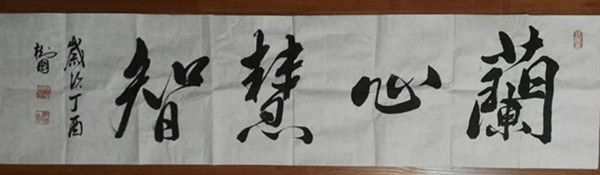 蘭心慧智
歲次丁酉